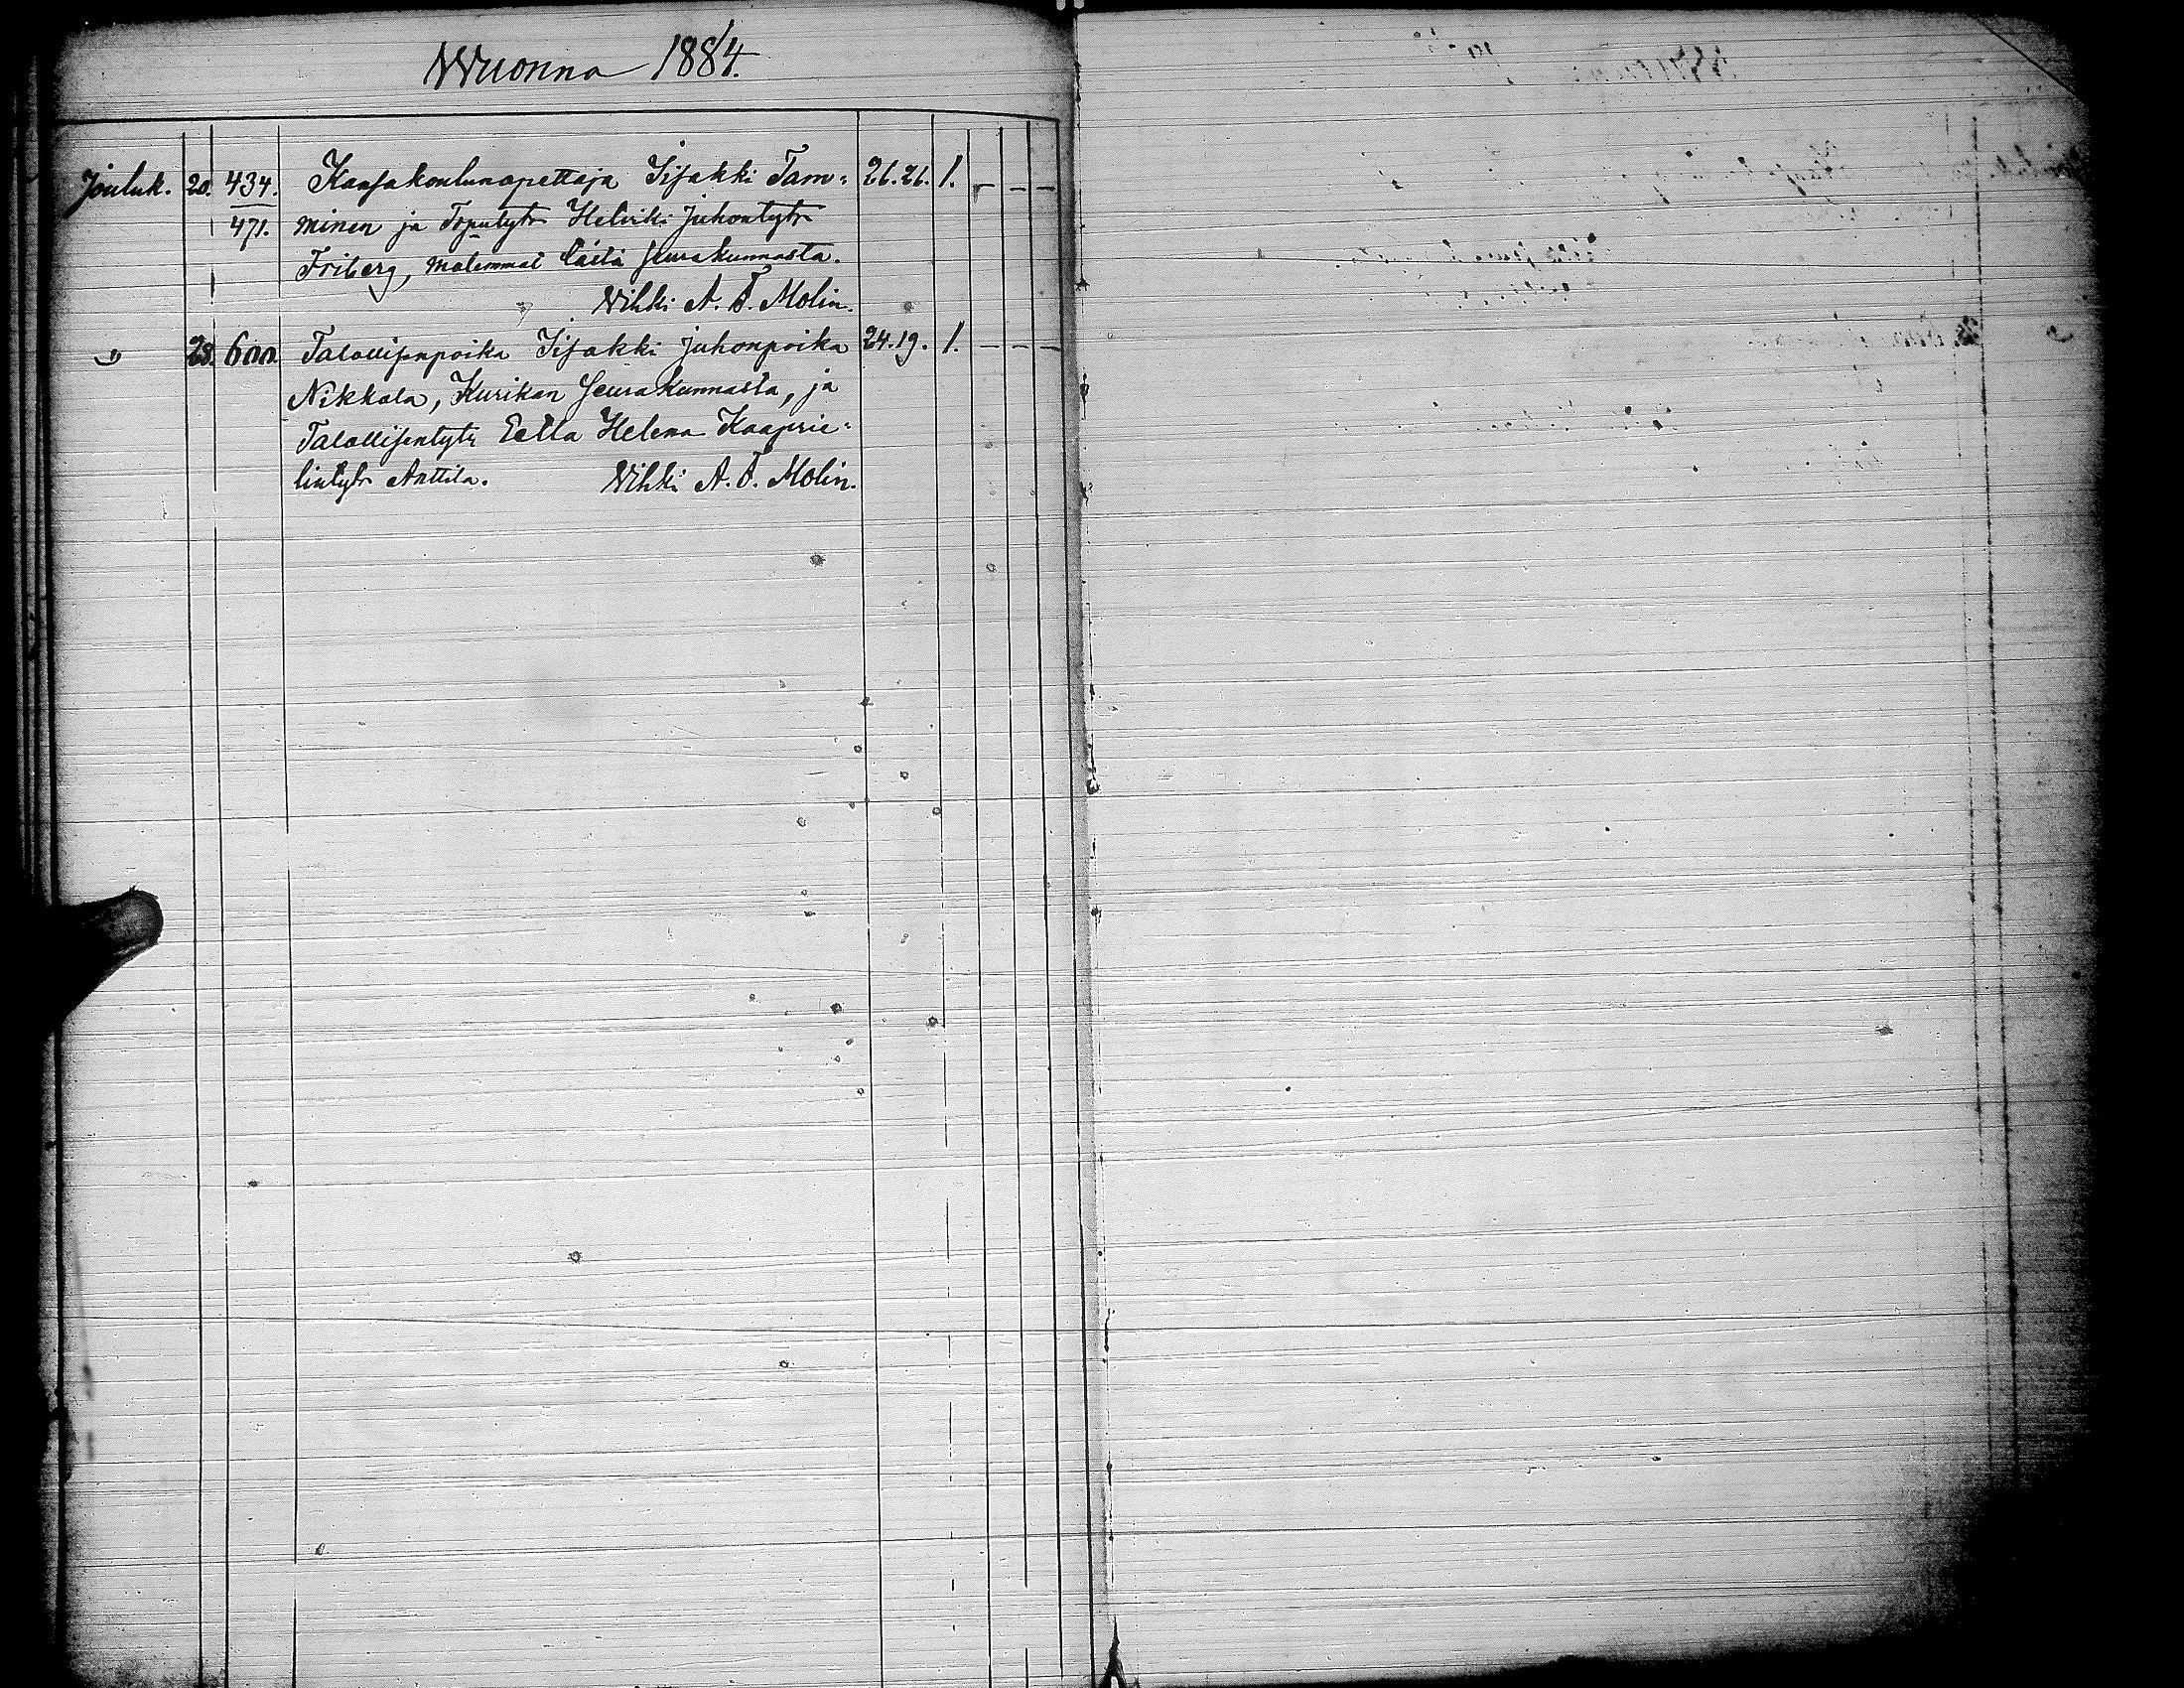 Wuonna 1884.
Jouluk. 20. 434. Kansakoulunopettaja Iisakki Tam= 26. 26. 1. – – –
471. minen ja Torputytr Helviki Juhontytr
Friberg, molemmat tästä seurakunnasta.
Wihki A. F. Molin.
" 28. 600. Talollisenpoika Iisakki Juhonpoika 24. 19. 1. – – –
Nikkola, Kurikan seurakunnasta, ja
Talollisentytr Eella Helena Kaaprie=
lintytr Anttila. Wihki A. F. Molin.